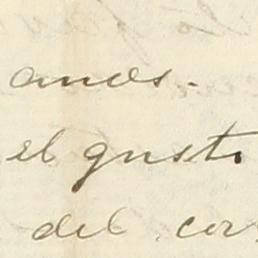 anos.
el gusto
del cor